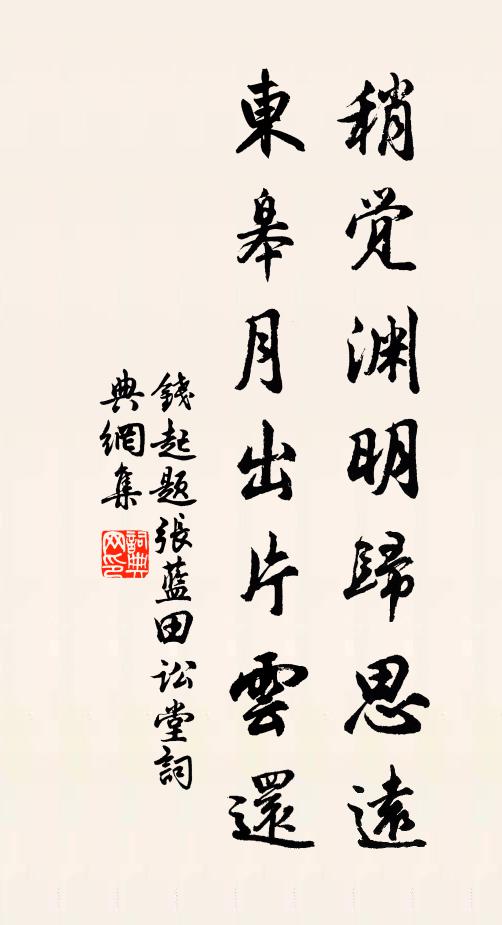 稍觉渊明歸思遠
東皋月出片雲還
錢起題張蓝田讼堂詞
典網集
詞典
网印